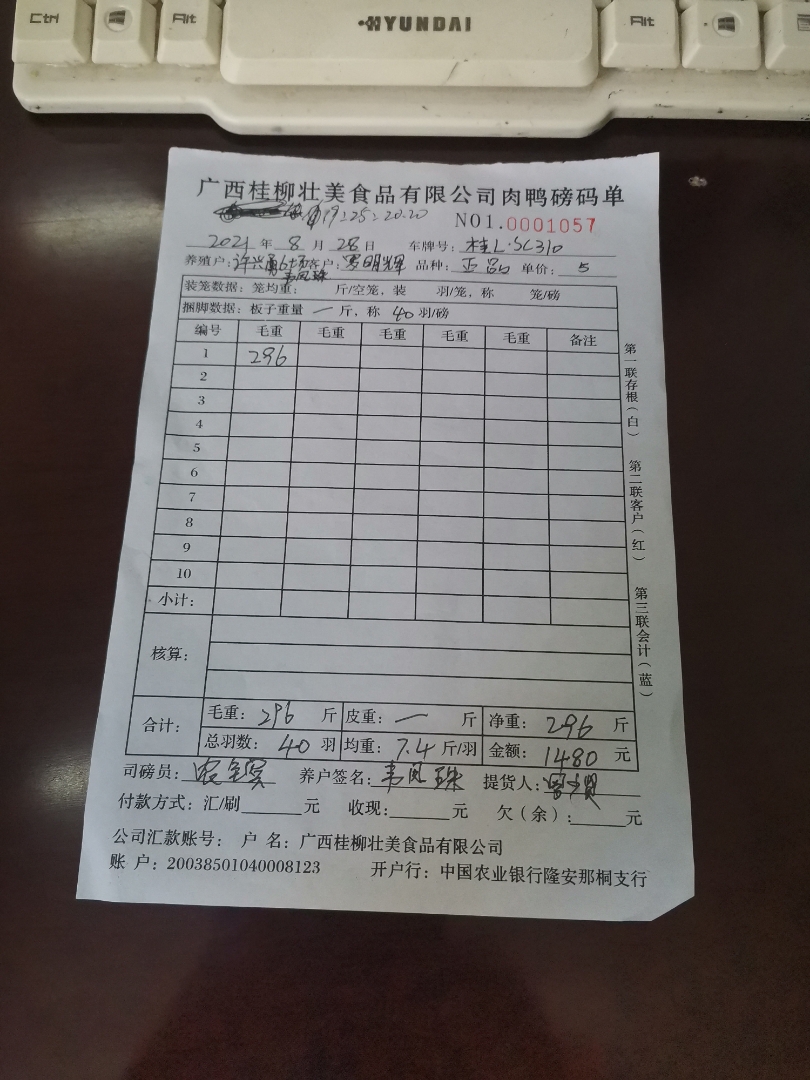 Ctrl Alt HYUNDAI Alt
广西桂柳壮美食品有限公司肉鸭磅码单
19:25-20:20 NO1.0001057
2021 年 8 月 28 日 车牌号: 桂L·SC310
养殖户: 许兴勇6场 客户: 罗明辉 品种: 正品 单价: 5
韦凤珠
装笼数据: 笼均重: 斤/空笼, 装 羽/笼, 称 笼/磅
捆脚数据: 板子重量 一 斤, 称 40 羽/磅
编号 毛重 毛重 毛重 毛重 毛重 备注
1 296
2
3
4
5
6
7
8
9
10
小计:
核算:
合计: 毛重: 296 斤 皮重: 一 斤 净重: 296 斤
总羽数: 40 羽 均重: 7.4 斤/羽 金额: 1480 元
司磅员: 养户签名: 韦凤珠 提货人:
付款方式: 汇/刷 元 收现: 元 欠(余): 元
公司汇款账号: 户 名: 广西桂柳壮美食品有限公司
账 户: 20038501040008123 开户行: 中国农业银行隆安那桐支行
第一联存根(白)
第二联客户(红)
第三联会计(蓝)